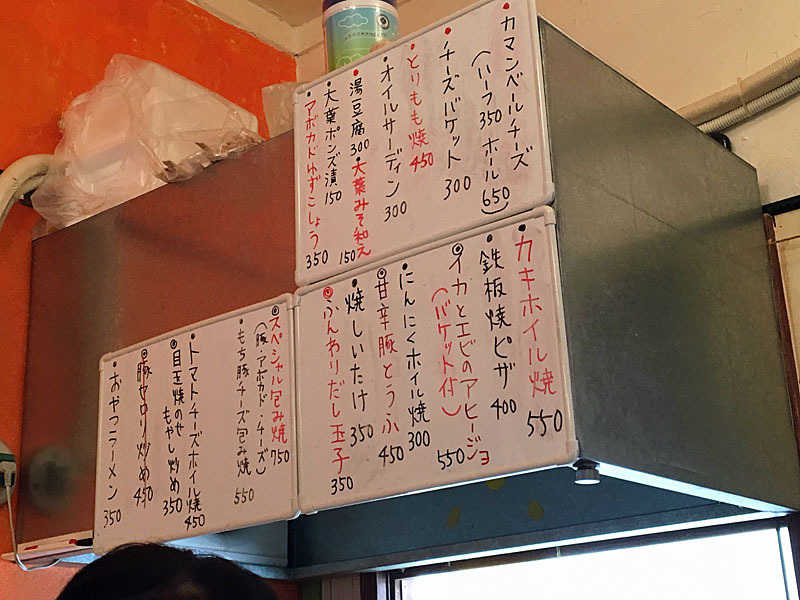 カマンベールチーズ
(ハーフ350 ホール650)
チーズバケット 300
とりもも焼 450
オイルサーディン 300
湯豆腐 300
大葉みそ和え 150
大葉ポンズ漬 150
アボカドゆずこしょう 350
カキホイル焼 550
鉄板焼ピザ 400
イカとエビのアヒージョ
(バケット付) 550
にんにくホイル焼 300
甘辛豚とうふ 450
焼しいたけ 350
ふんわりだし玉子 350
スペシャル包み焼 750
(豚・アボカド・チーズ)
もち豚チーズ包み焼 550
トマトチーズホイル焼 450
目玉焼のせ
もやし炒め 350
豚セロリ炒め 450
おやつラーメン 350